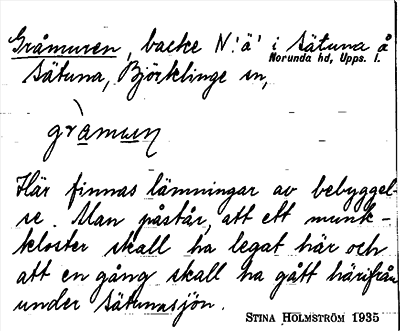 Gråmuren, backe N.'ä' i Sätuna å
Norunda hd, Upps. l.
Sätuna, Björklinge sn,
gràmun
Här finnas lämningar av bebyggel-
se. Man påstår, att ett munk-
kloster skall ha legat här och
att en gång skall ha gått härifrån
under Sätunasjön.
STINA HOLMSTRÖM 1935